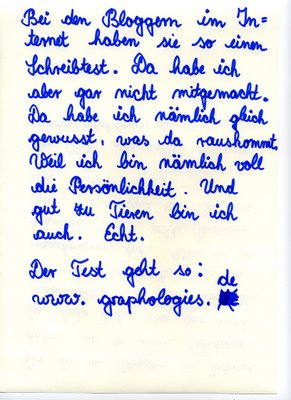 Bei den Bloggern im In=
ternet haben sie so einen
Schreibtest. Da habe ich
aber gar nicht mitgemacht.
Da habe ich nämlich gleich
gewusst, was da rauskommt.
Weil ich bin nämlich voll
die Persönlichkeit. Und
gut zu Tieren bin ich
auch. Echt.
Der Test geht so:
www.graphologies.de